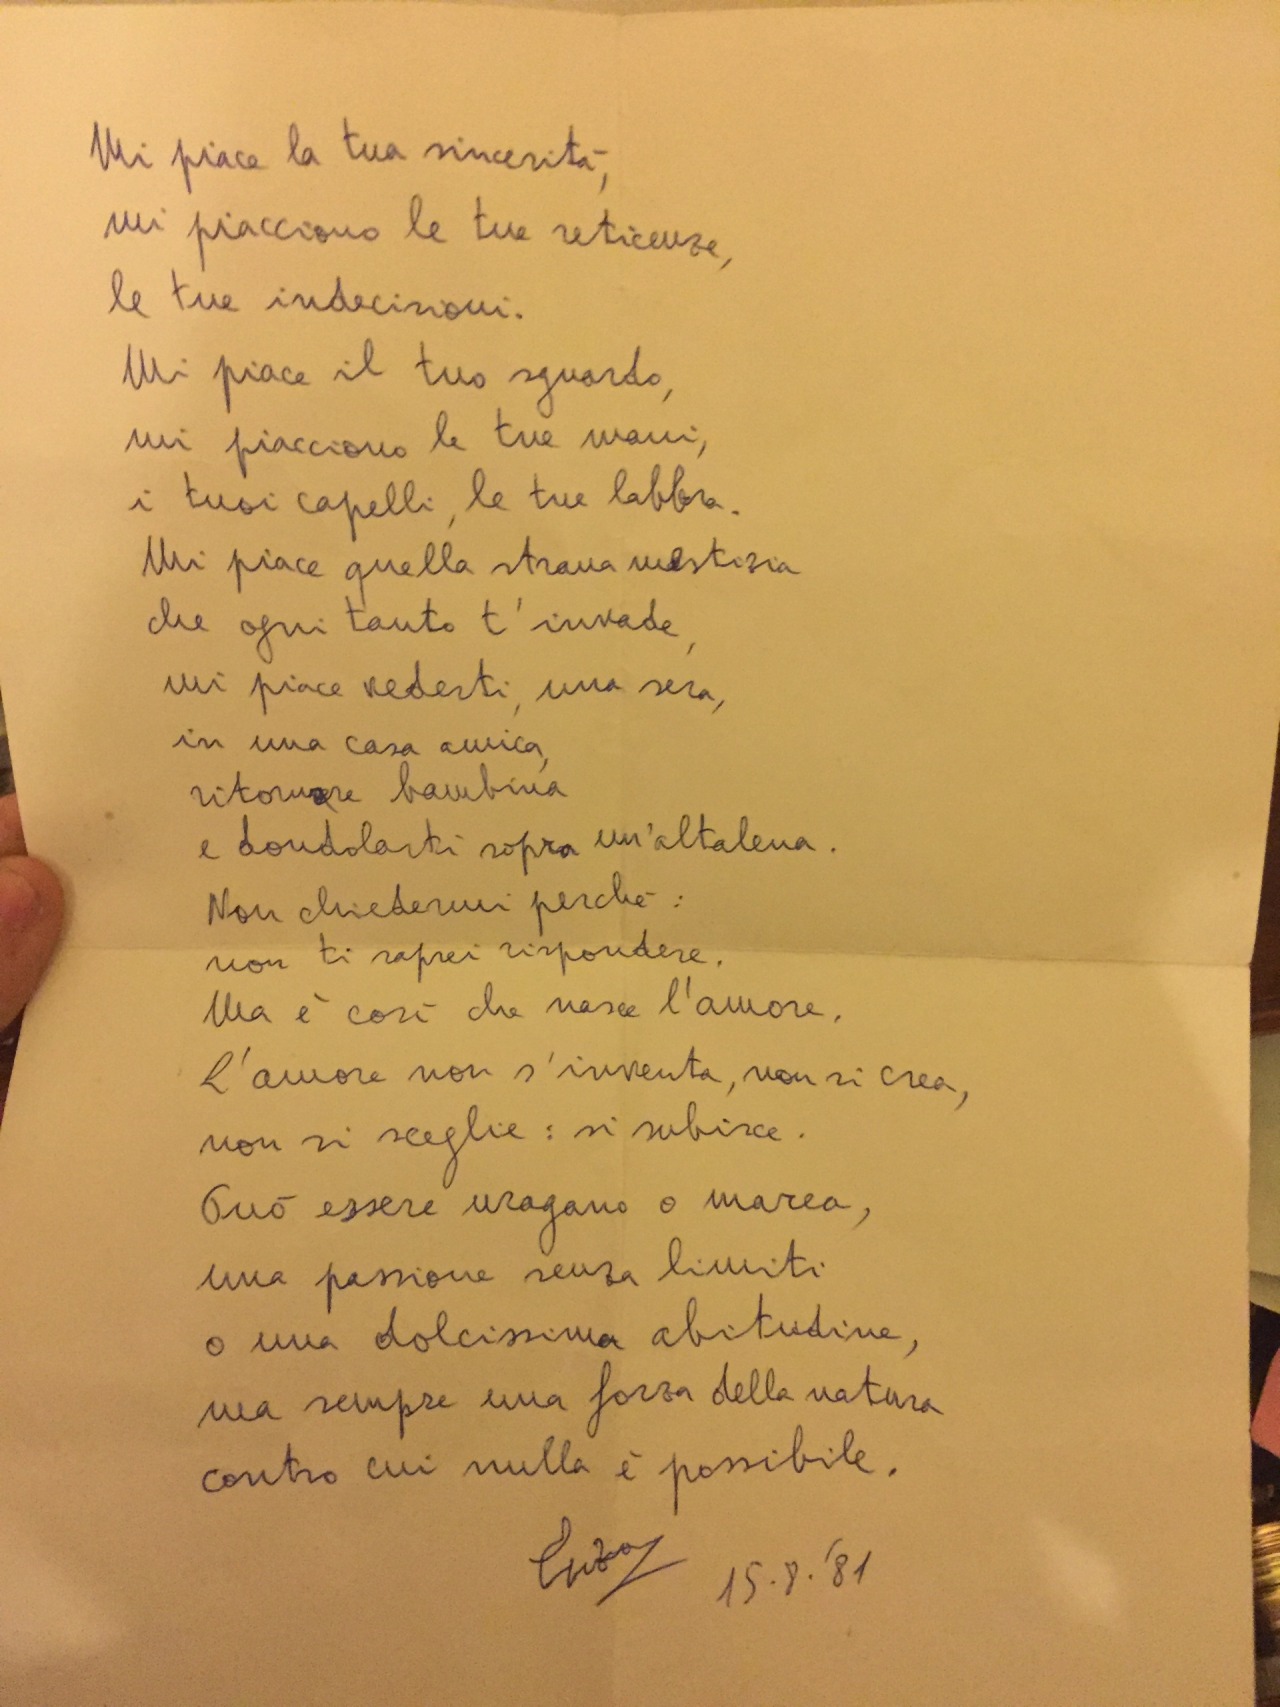 Mi piace la tua sincerità,
mi piacciono le tue reticenze,
le tue indecisioni.
Mi piace il tuo sguardo,
mi piacciono le tue mani,
i tuoi capelli, le tue labbra.
Mi piace quella strana mestizia
che ogni tanto t'invade,
mi piace vederti, una sera,
in una casa amica,
ritornare bambina
e dondolarti sopra un'altalena.
Non chiedermi perché:
non ti saprei rispondere.
Ma è così che nasce l'amore.
L'amore non s'inventa, non si crea,
non si sceglie: si subisce.
Può essere uragano o marea,
una passione senza limiti
o una dolcissima abitudine,
ma sempre una forza della natura
contro cui nulla è possibile.
15.8.'81